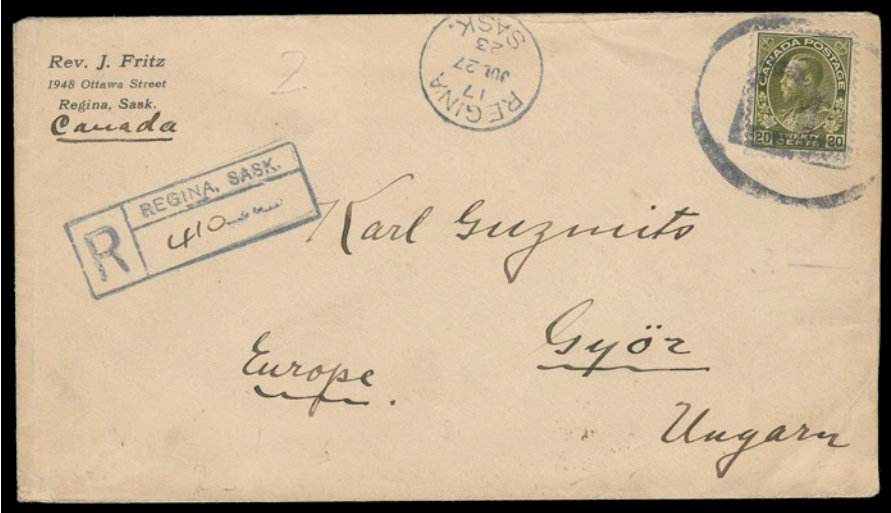 Rev. J. Fritz
1948 Ottawa Street
Regina, Sask.
Canada
2
REGINA
17
JUL 27
23
SASK.
CANADA POSTAGE
20 TWENTY CENTS 20
REGINA, SASK.
R
410
Karl Guzmits
Györ
Europe.
Ungarn